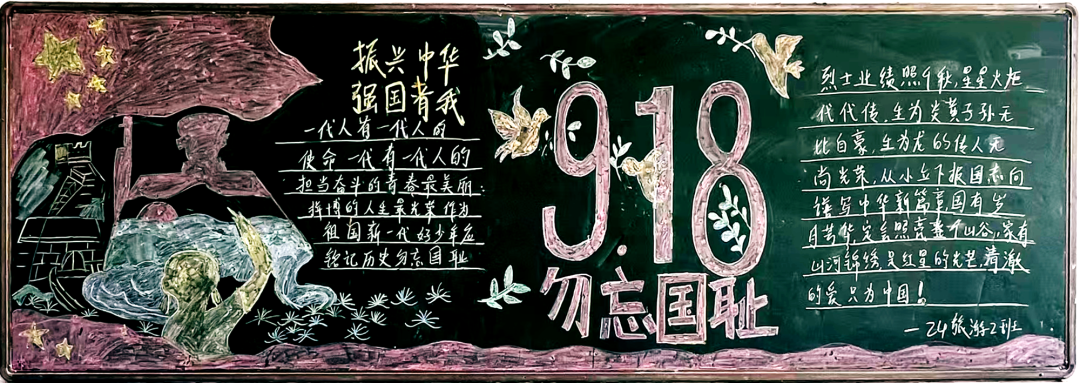 振兴中华
强国有我
一代人有一代人的
使命一代有一代人的
担当奋斗的青春最美丽
拼搏的人生最光荣作为
祖国新一代好少年应
铭记历史勿忘国耻
9.18
勿忘国耻
烈士业绩照千秋,星星火炬
代代传.生为炎黄子孙无
比自豪,生为龙的传人无
尚光荣,从小立下报国志向
谱写中华新篇章国有岁
月芳华,定会照亮万山谷,家有
山河锦绣是红星的光芒,清澈
的爱只为中国!